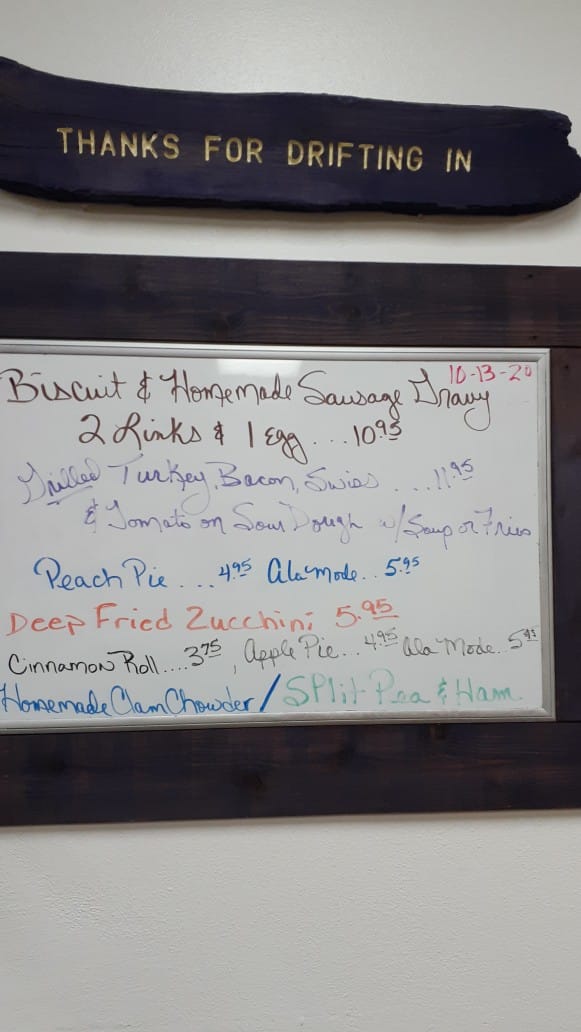 THANKS FOR DRIFTING IN
10-13-20
Biscuit & Homemade Sausage Gravy
2 Links & 1 Egg ... 10.95
Grilled Turkey, Bacon, Swiss ... 11.95
& Tomato on Sour Dough w/ Soup or Fries
Peach Pie ... 4.95 Ala Mode.. 5.95
Deep Fried Zucchini 5.95
Cinnamon Roll .... 3.75, Apple Pie... 4.95 Ala Mode.. 5.95
Homemade Clam Chowder / Split Pea & Ham